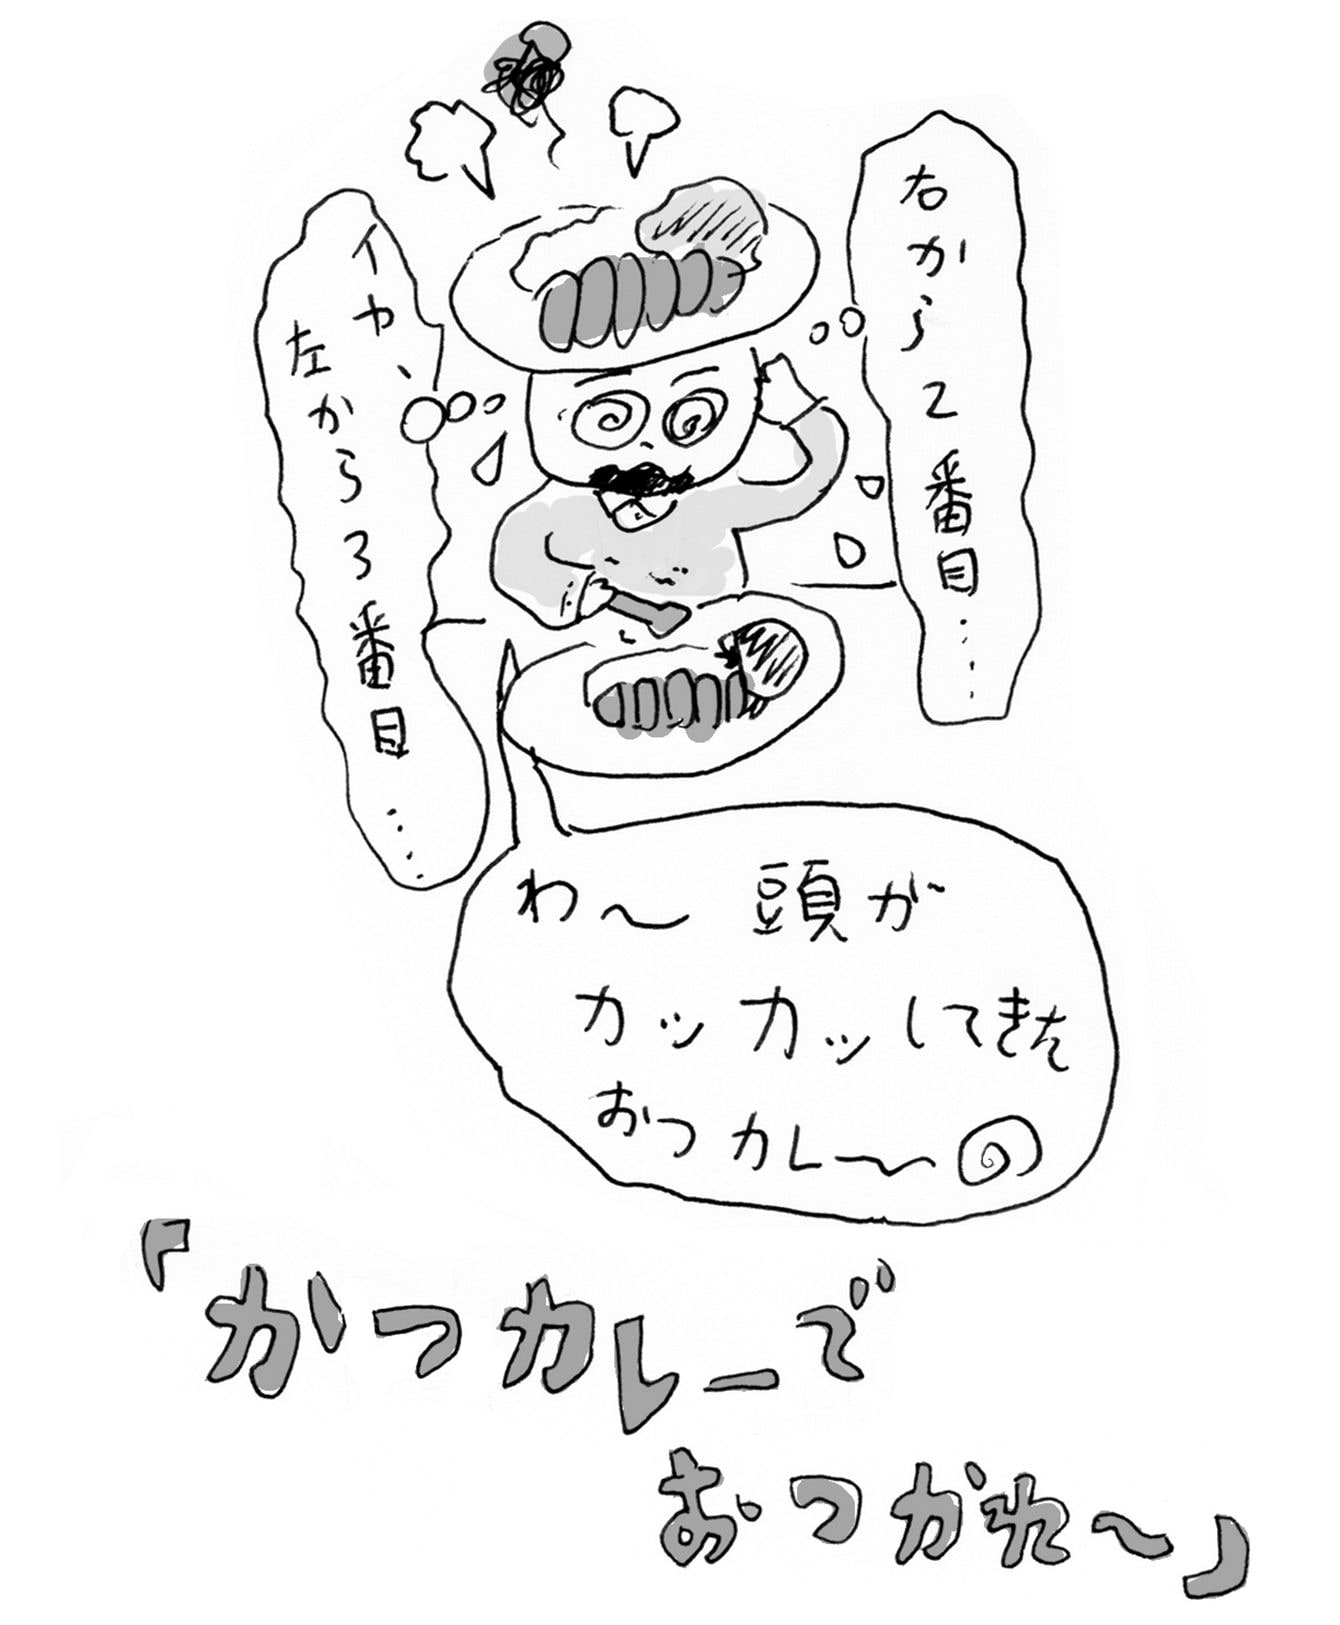 右から2番目……
イヤ、
左から3番目……
わ〜 頭が
カッカッしてきた
おつカレ〜
「かつカレーで
おつかれ〜」